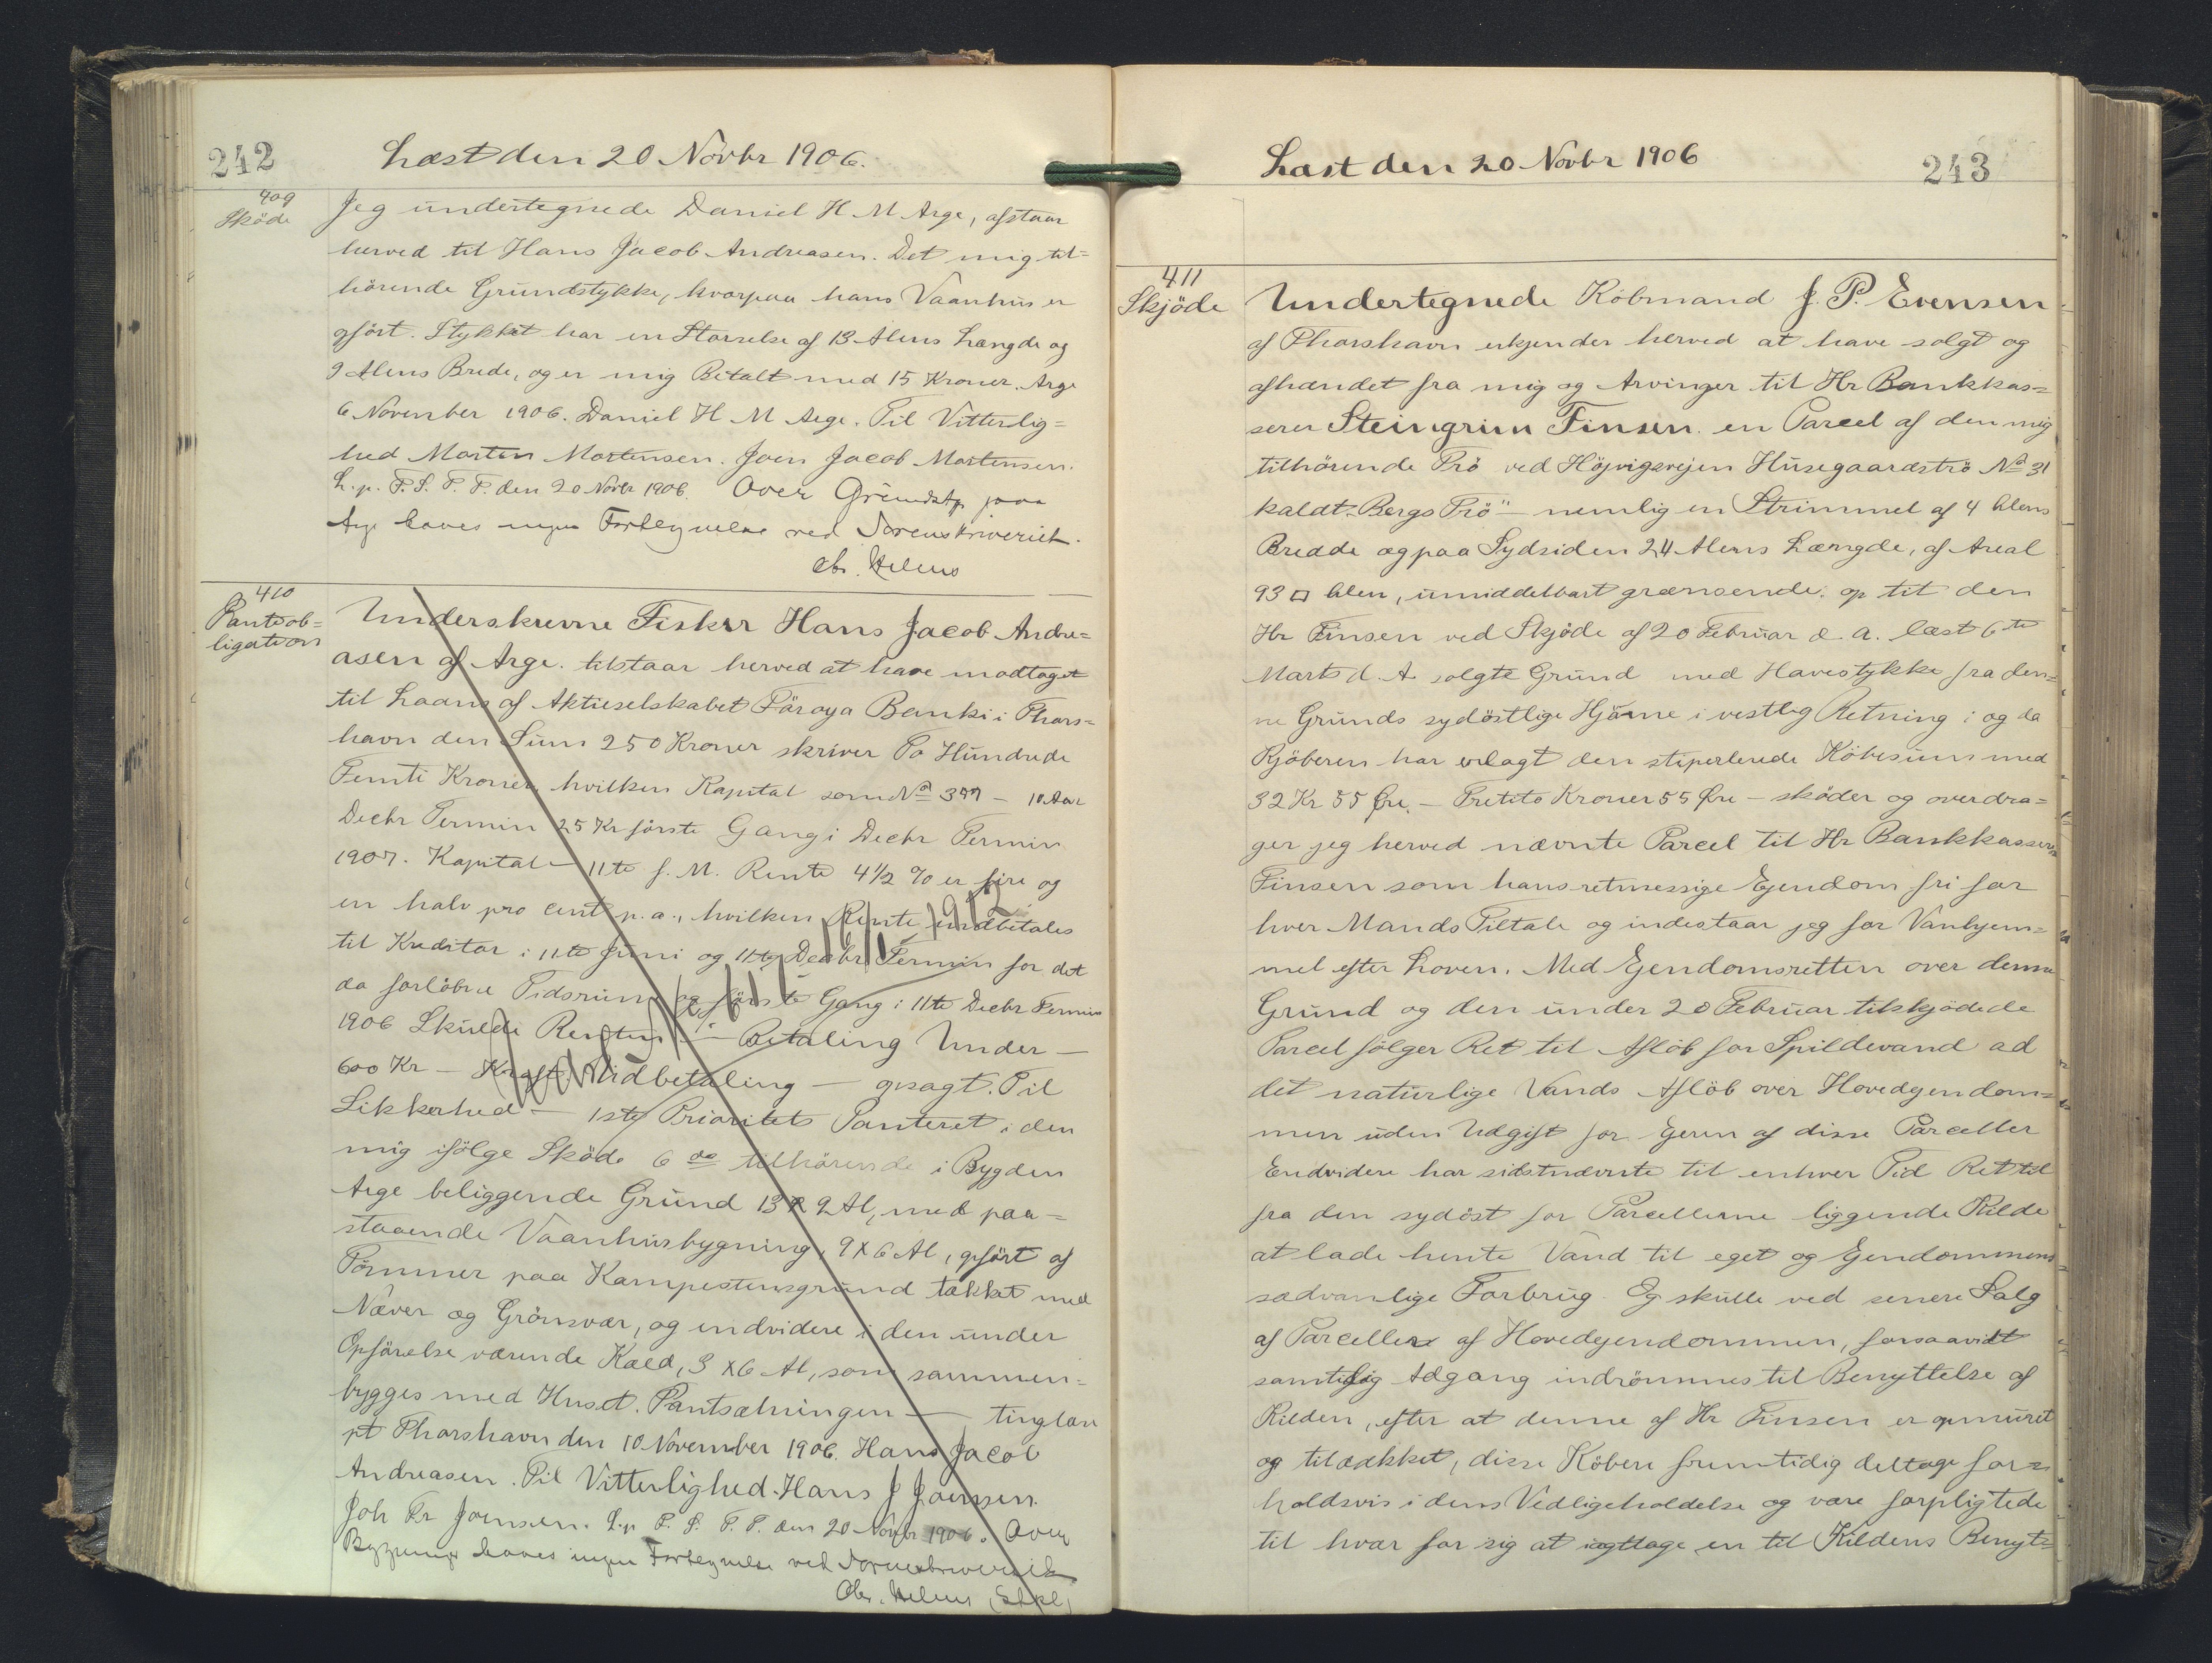 242
Læst den 20 Novbr 1906.
409
Sköde
Jeg undertegnede Daniel H M Arge, afstaar
herved til Hans Jacob Andreasen. Det mig til=
hörende Grundstykke, hvorpaa hans Vaanhus er
opfört. Stykket har en Störrelse af 13 Alens Længde og
9 Alens Brede, og er mig Betalt med 15 Kroner. Arge
6 November 1906. Daniel H M Arge. Til Vitterlig=
hed Morten Mortensen. Joen Jacob Mortensen.
L. p. F. S. T. T. den 20 Novbr 1906. Over Grundst. paa
Arge haves ingen Forbegnelse ved Sorenskriveriet.
Chr. Helms
410
Pantsob=
ligation
Underskrevne Fisker Hans Jacob Andre=
asen af Arge. tilstaar herved at have modtaget
til Laans af Aktieselskabet Föroya Banki i Thors=
havn den Sum 250 Kroner skriver To Hundrede
Femti Kroner, hvilken Kapital som No 399 — 10 Aar
Decbr Termin 25 Kr förste Gang i Decbr Termin
1907. Kapital — 11te f. M. Rente 4 1/2 % er fire og
en halv pro cent p. a., hvilken Rente indbetales
til Kreditor i 11te Juni og 11te Decbr Termin for det
da forlöbne Tidsrum og förste Gang i 11te Decbr Termin
1906 Skulde Renten — Betaling Under —
600 Kr — Kraft Indbetaling — opsagt. Til
Sikkerhed — 1ste Prioritets Panteret i den
mig ifölge Sköde 6 ds tilhörende i Bygden
Arge beliggende Grund 13 x 9 Al, med paa=
staaende Vaanhusbygning, 9 x 6 Al, opfört af
Tömmer paa Kampestensgrund tækket med
Næver og Grönsvær, og endvidere i den under
Opförelse værende Kæld, 3 x 6 Al, som sammen=
bygges med Huset. Pantsætningen — tinglæs
pt Thorshavn den 10 November 1906. Hans Jacob
Andreasen. Til Vitterlighed. Hans J Joensen.
Joh Fr Joensen. L. p. F. S. T. T. den 20 Novbr 1906. Over
Bygninger haves ingen Forbegnelse ved Sorenskriveriet
Chr. Helms
243
Læst den 20 Novbr 1906
411
Skjöde
Undertegnede Köbmand J. P. Evensen
af Thorshavn erkjender herved at have solgt og
afhændet fra mig og Arvinger til Hr Bankkas=
serer Steingrim Finsen en Parcel af den mig
tilhörende Trö ved Höjvigsvejen Husegaardströ No 31
kaldt „Bergs Trö" — nemlig en Strimmel af 4 Alens
Bredde og paa Sydsiden 24 Alens Længde, af Areal
93 □ Alen, umiddelbart grænsende op til den
Hr Finsen ved Skjöde af 20 Februar d. A. læst 6te
Marts d. A. solgte Grund med Havestykke fra den=
ne Grunds sydöstlige Hjörne i vestlig Retning; og da
Kjöberen har erlagt den stipulerede Köbesum med
32 Kr 55 Öre. — Tretito Kroner 55 Öre — sköder og overdra=
ger jeg herved nævnte Parcel til Hr Bankkasserer
Finsen som hans retmessige Ejendom fri for
hver Mands Tiltale og indestaar jeg for Vanhjem=
mel efter Loven. Med Ejendomsretten over denne
Grund og den under 20 Februar tilskjödede
Parcel fölger Ret til Aflöb for Spildevand ad
det naturlige Vands Aflöb over Hovedejendom=
men uden Udgift for Ejeren af disse Parceller
Endvidere har sidstnævnte til enhver Tid Ret til
fra den sydöst for Parcellerne liggende Kilde
at lade hente Vand til eget og Ejendommens
sædvanlige Forbrug. Og skulle ved senere Salg
af Parceller af Hovedejendommen, forsaavidt
samtidig Adgang indrömmes til Benyttelse af
Kilden, efter at denne af Hr Finsen er opmuret
og tildækket, disse Köbere fremtidig deltage for=
holdsvis i dens Vedligeholdelse og være forpligtede
til hver for sig at iagttage en til Kildens Benyt=